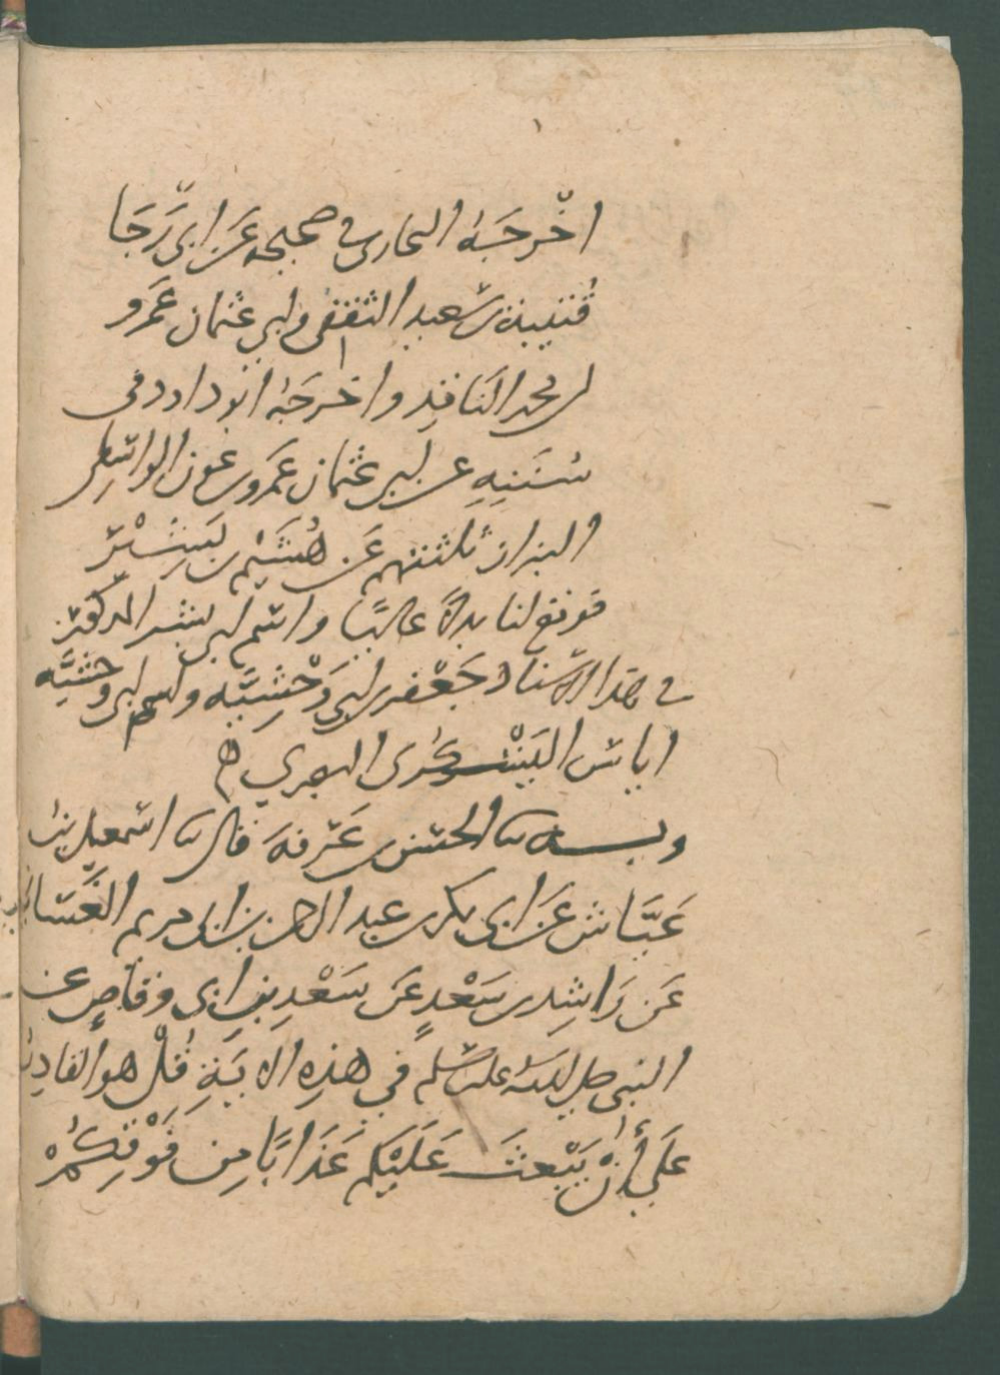 اخرجه البخاري في صحيحه عن ابي رَجَا
قتيبة بن سعيد الثقفي وابي عثمان عَمرو
بن محمد الناقد واخرجه ابو داود في
سننه عن ابي عثمان عمرو بن عون الواسطي
البزاز ثلثتهم عن هُشَيْم بن بَشِيْر
فوقع لنا بدلاً عاليًا واسم ابي بشر المذكور
في هذا الاسناد جَعْفر بن ابي وَحْشِيَّه واسم ابي وحشيَّه
اياس اليَشْكُرى البصري
وبه نا الحسن بن عَرَفة قال نا اسمعيل بن
عَيَّاش عَن ابي بكر بن عبد الله بن ابي مريم الغَسَّاني
عَن رَاشِد بن سَعْدٍ عَن سَعْدِ بن ابي وقاصٍ عن
النبي صلى الله عليه وسلم في هذِه الايَةِ قُلْ هو القادِر
عَلَى أَنْ يَبْعثَ عَلَيْكم عَذَابًا مِن فَوْقِكُمْ